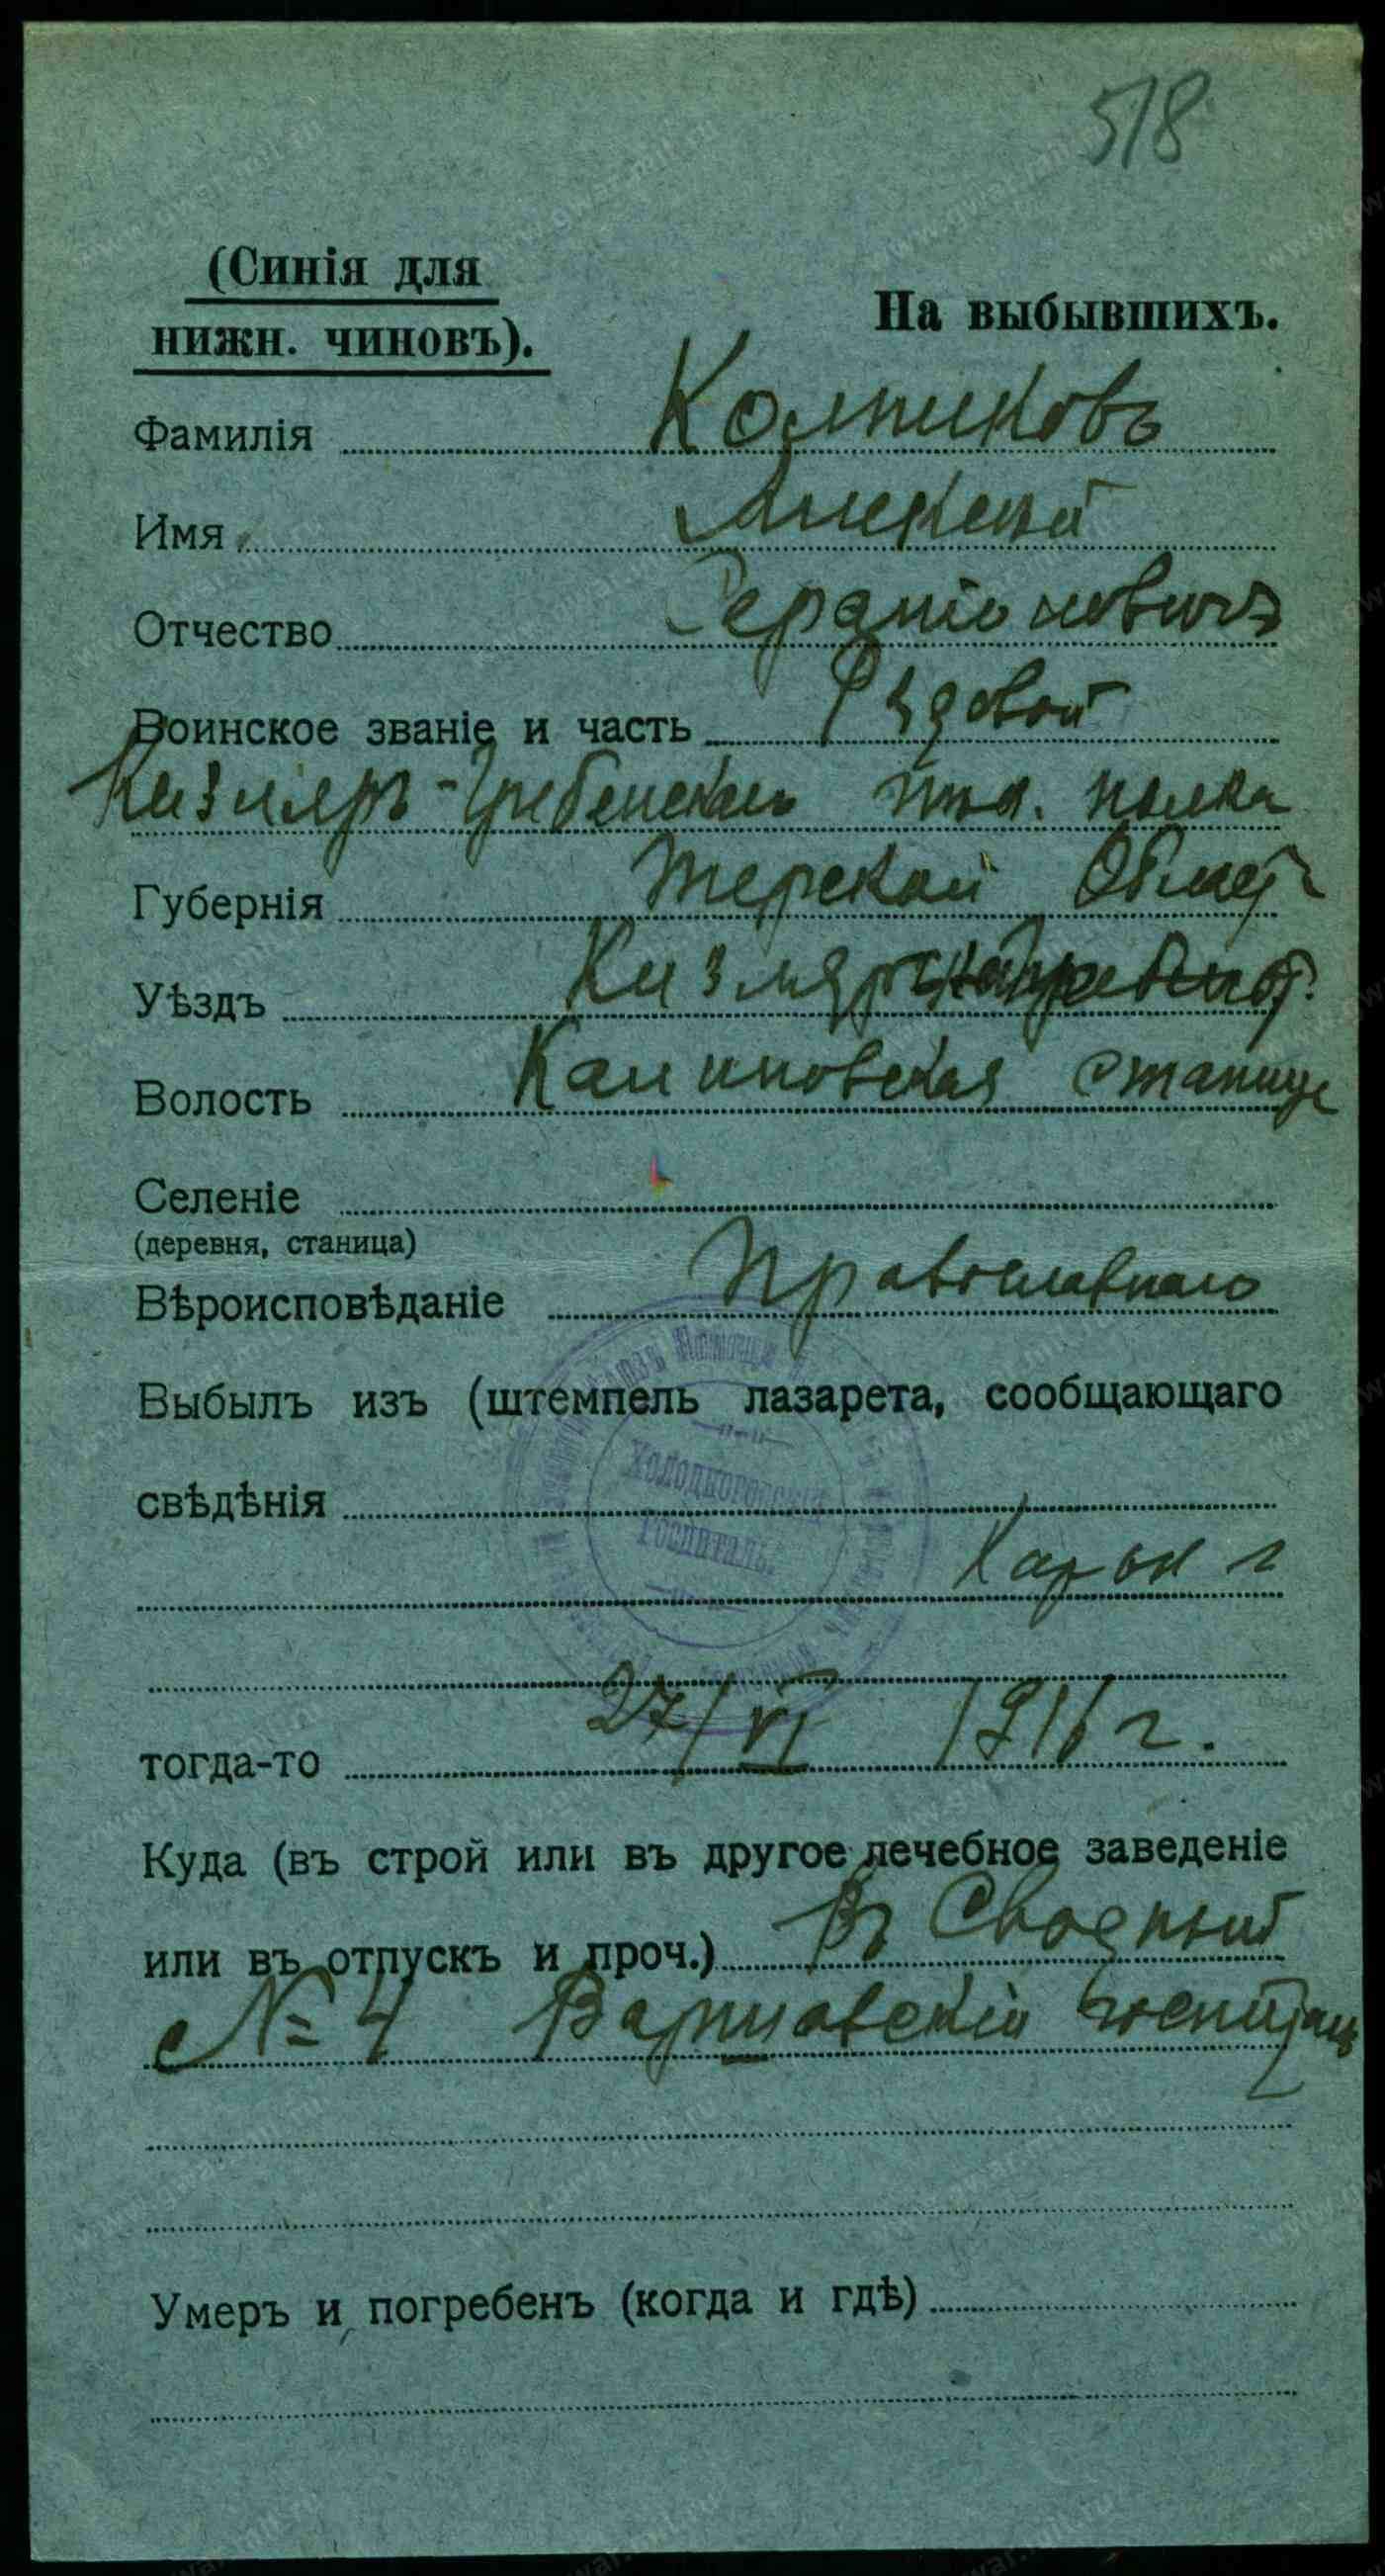 518
(Синія для
нижн. чиновъ).
На выбывшихъ.
Фамилія Колпиковъ
Имя Алексей
Отчество
Воинское званіе и часть Рядовой
Кизляръ-Гребенскаго полка
Губернія Терской Област
Уѣздъ
Волость Калиновская станица
Селеніе
(деревня, станица)
Вѣроисповѣданіе Православнаго
Выбылъ изъ (штемпель лазарета, сообщающаго
свѣдѣнія
Холодногорскій
Госпиталь.
Харьк г
тогда-то 27/VI 1916 г.
Куда (въ строй или въ другое лечебное заведеніе
или въ отпускъ и проч.) Въ Сводный
№ 4 Варшавскій госпиталь
Умеръ и погребенъ (когда и гдѣ)